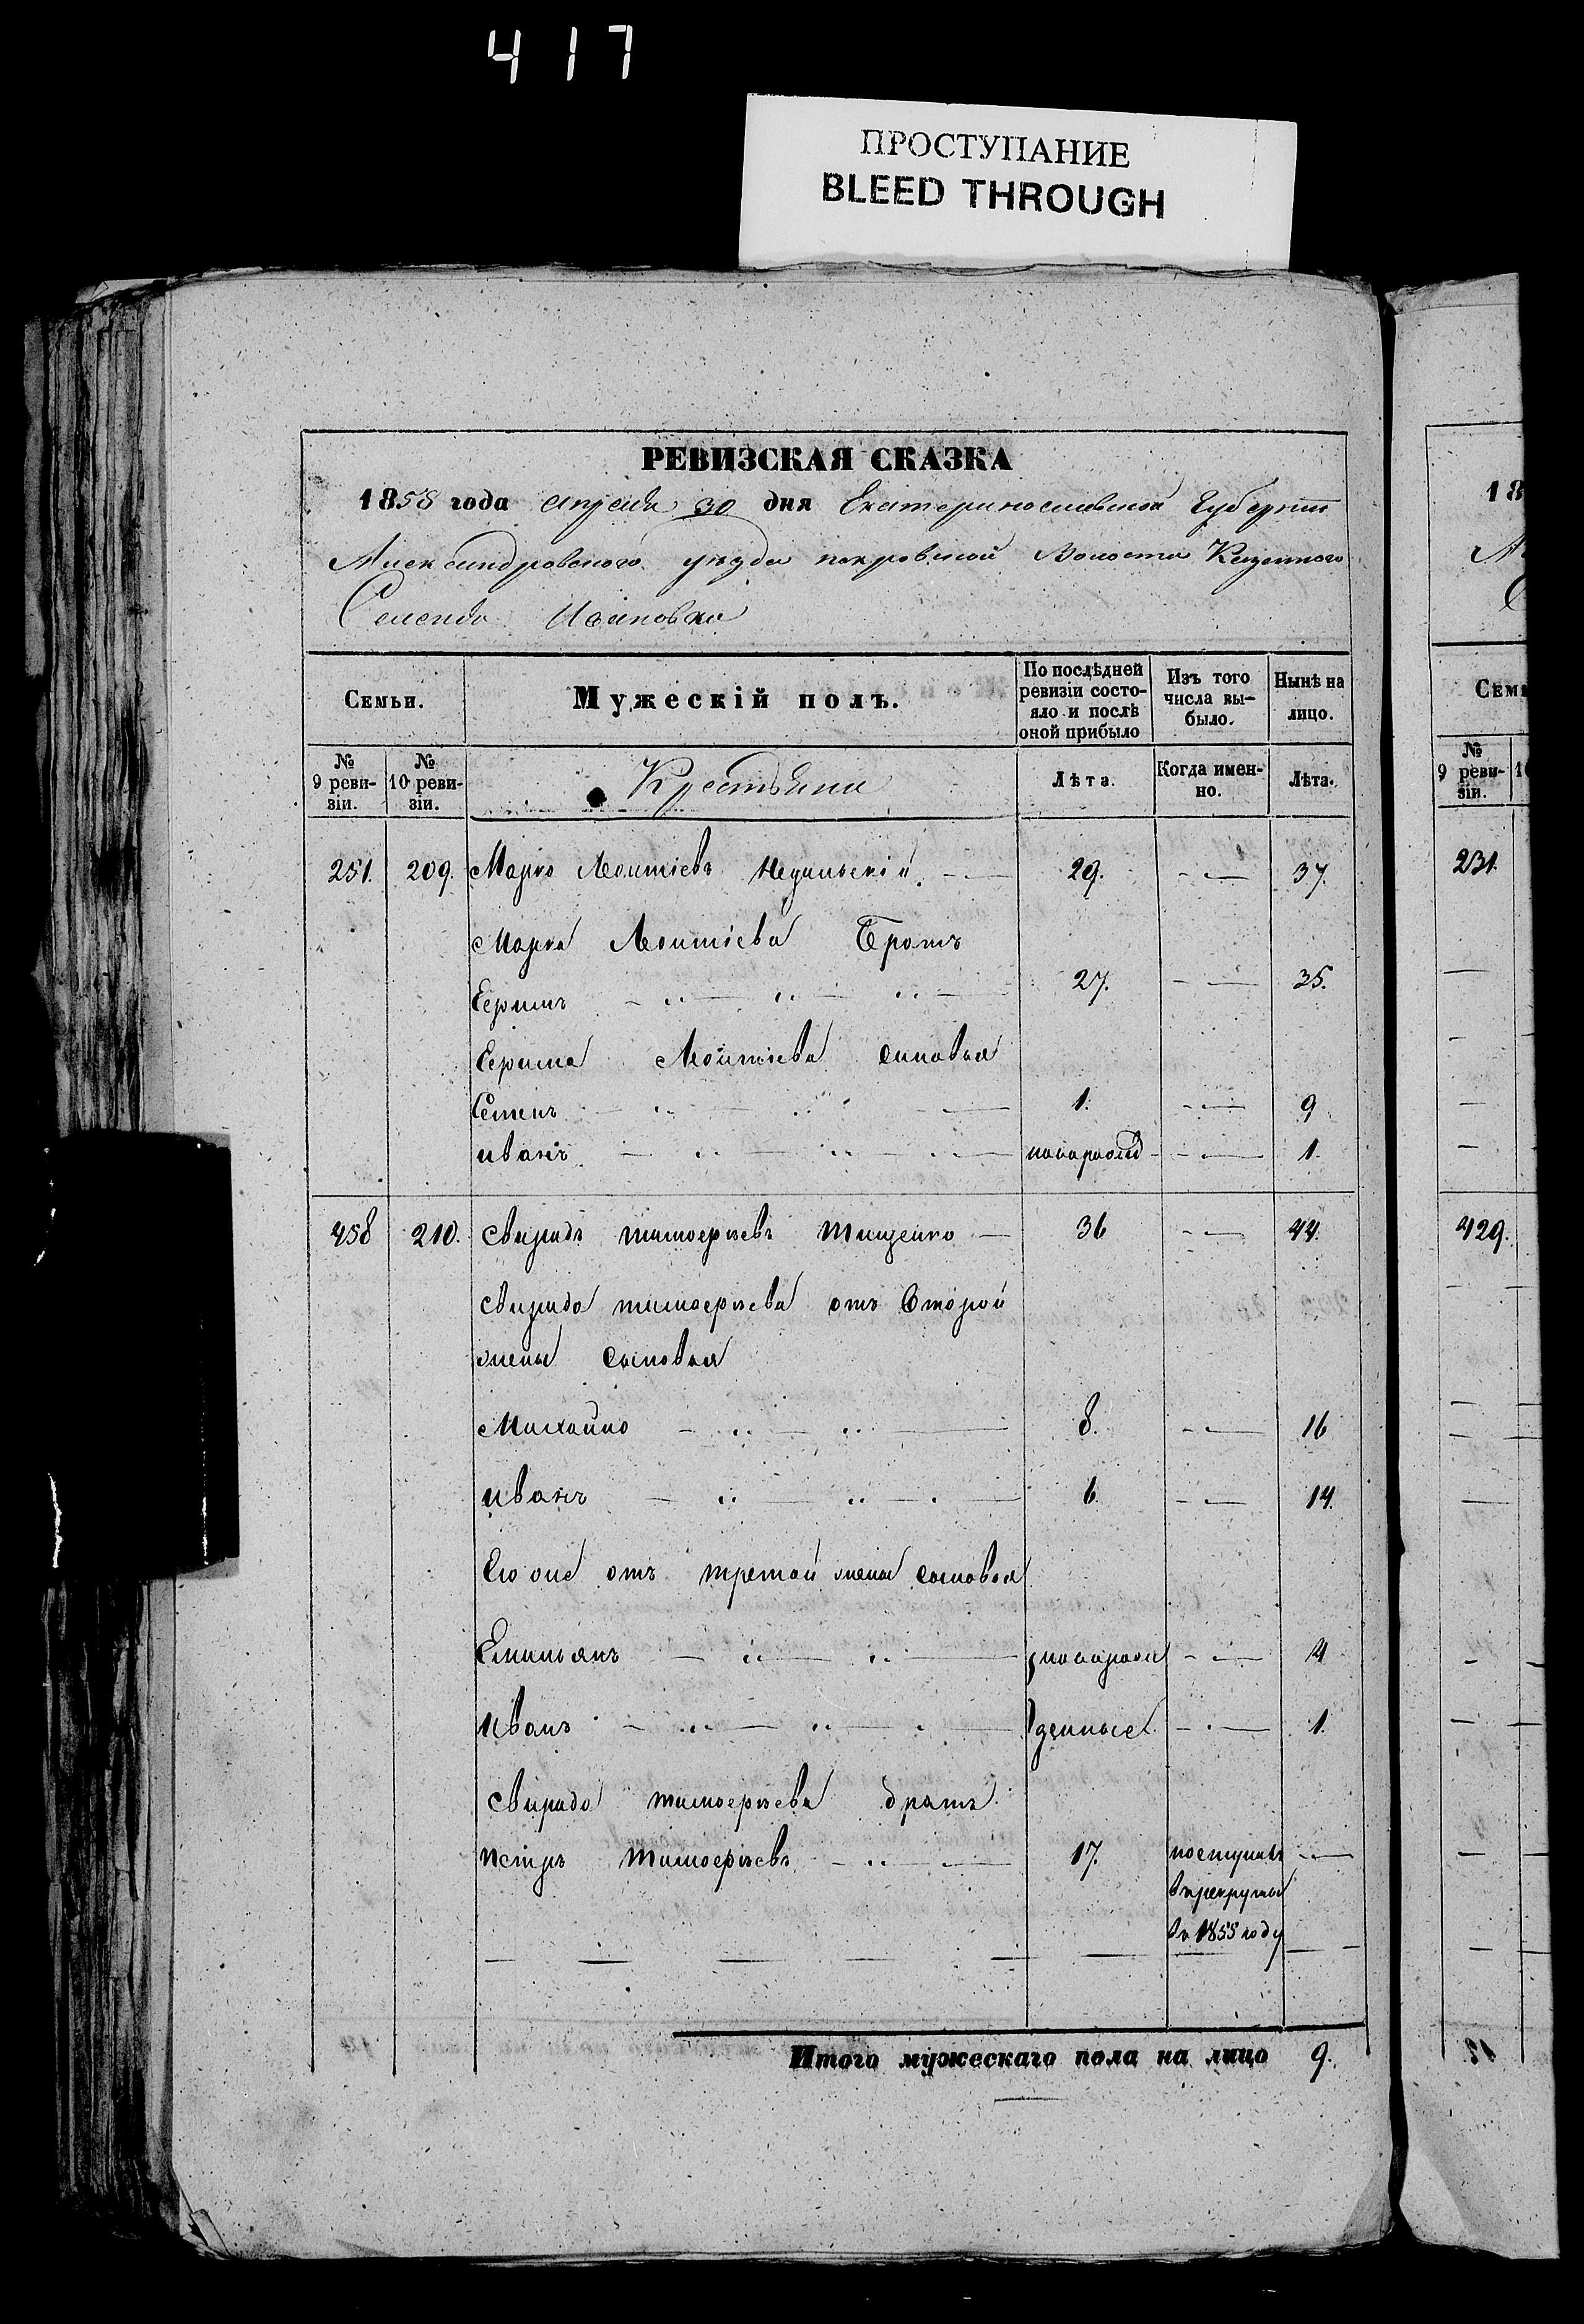 417
ПРОСТУПАНИЕ
BLEED THROUGH
РЕВИЗСКАЯ СКАЗКА
1858 года апреля 30 дня Екатеринославской Губернии
Александровского уезда покровской Волости Казенного
Селенія
Семьи. Мужескій полъ. По послѣдней ревизіи состояло и послѣ оной прибыло Изъ того числа выбыло. Нынѣ на лицо.
№ 9 ревизіи. № 10 ревизіи. Крестьяни Лѣта. Когда именно. Лѣта.
251. 209. Марко Леонтіевъ 29. 37.
Марка Леонтіева Братъ
Ефимъ 27. 35.
Ефима Леонтіева синовья
Семенъ 1. 9
иванъ 1.
458 210. Свиридъ тимофѣевъ Тищенко 36 44.
Свирида тимофѣева отъ Второй
жены сыновья
Михайло 8. 16
иванъ 6. 14.
Его же отъ третой жены сыновья
Емильянъ новорож 4
Иванъ денные 1.
Свирида тимофѣева братъ
петръ тимофѣевъ 17. поступилъ
врекруты
въ 1855 году
Итого мужескаго пола на лицо 9.
18
Семь
№ 9 ревизіи.
231.
429.